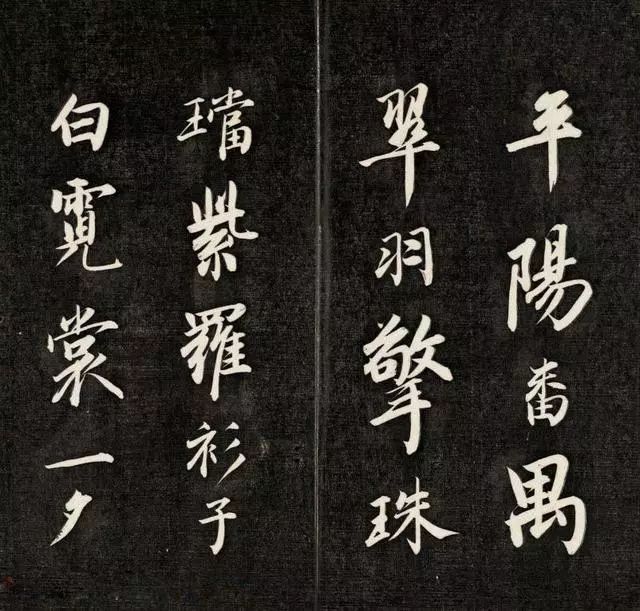 平陽番禺
翠羽擎珠
璫紫羅衫子
白霓裳一夕